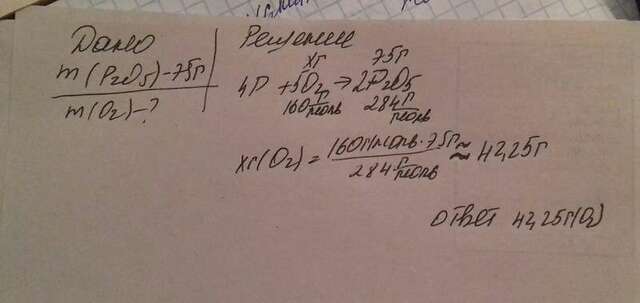 Дано
m(P2O5)-75г
m(O2)-?
Решение
xг 75г
4P + 5O2 → 2P2O5
160 г/моль 284 г/моль
xг(O2) = 160г/моль·75г / 284 г/моль ≈ 42,25г
ответ 42,25г(O2)